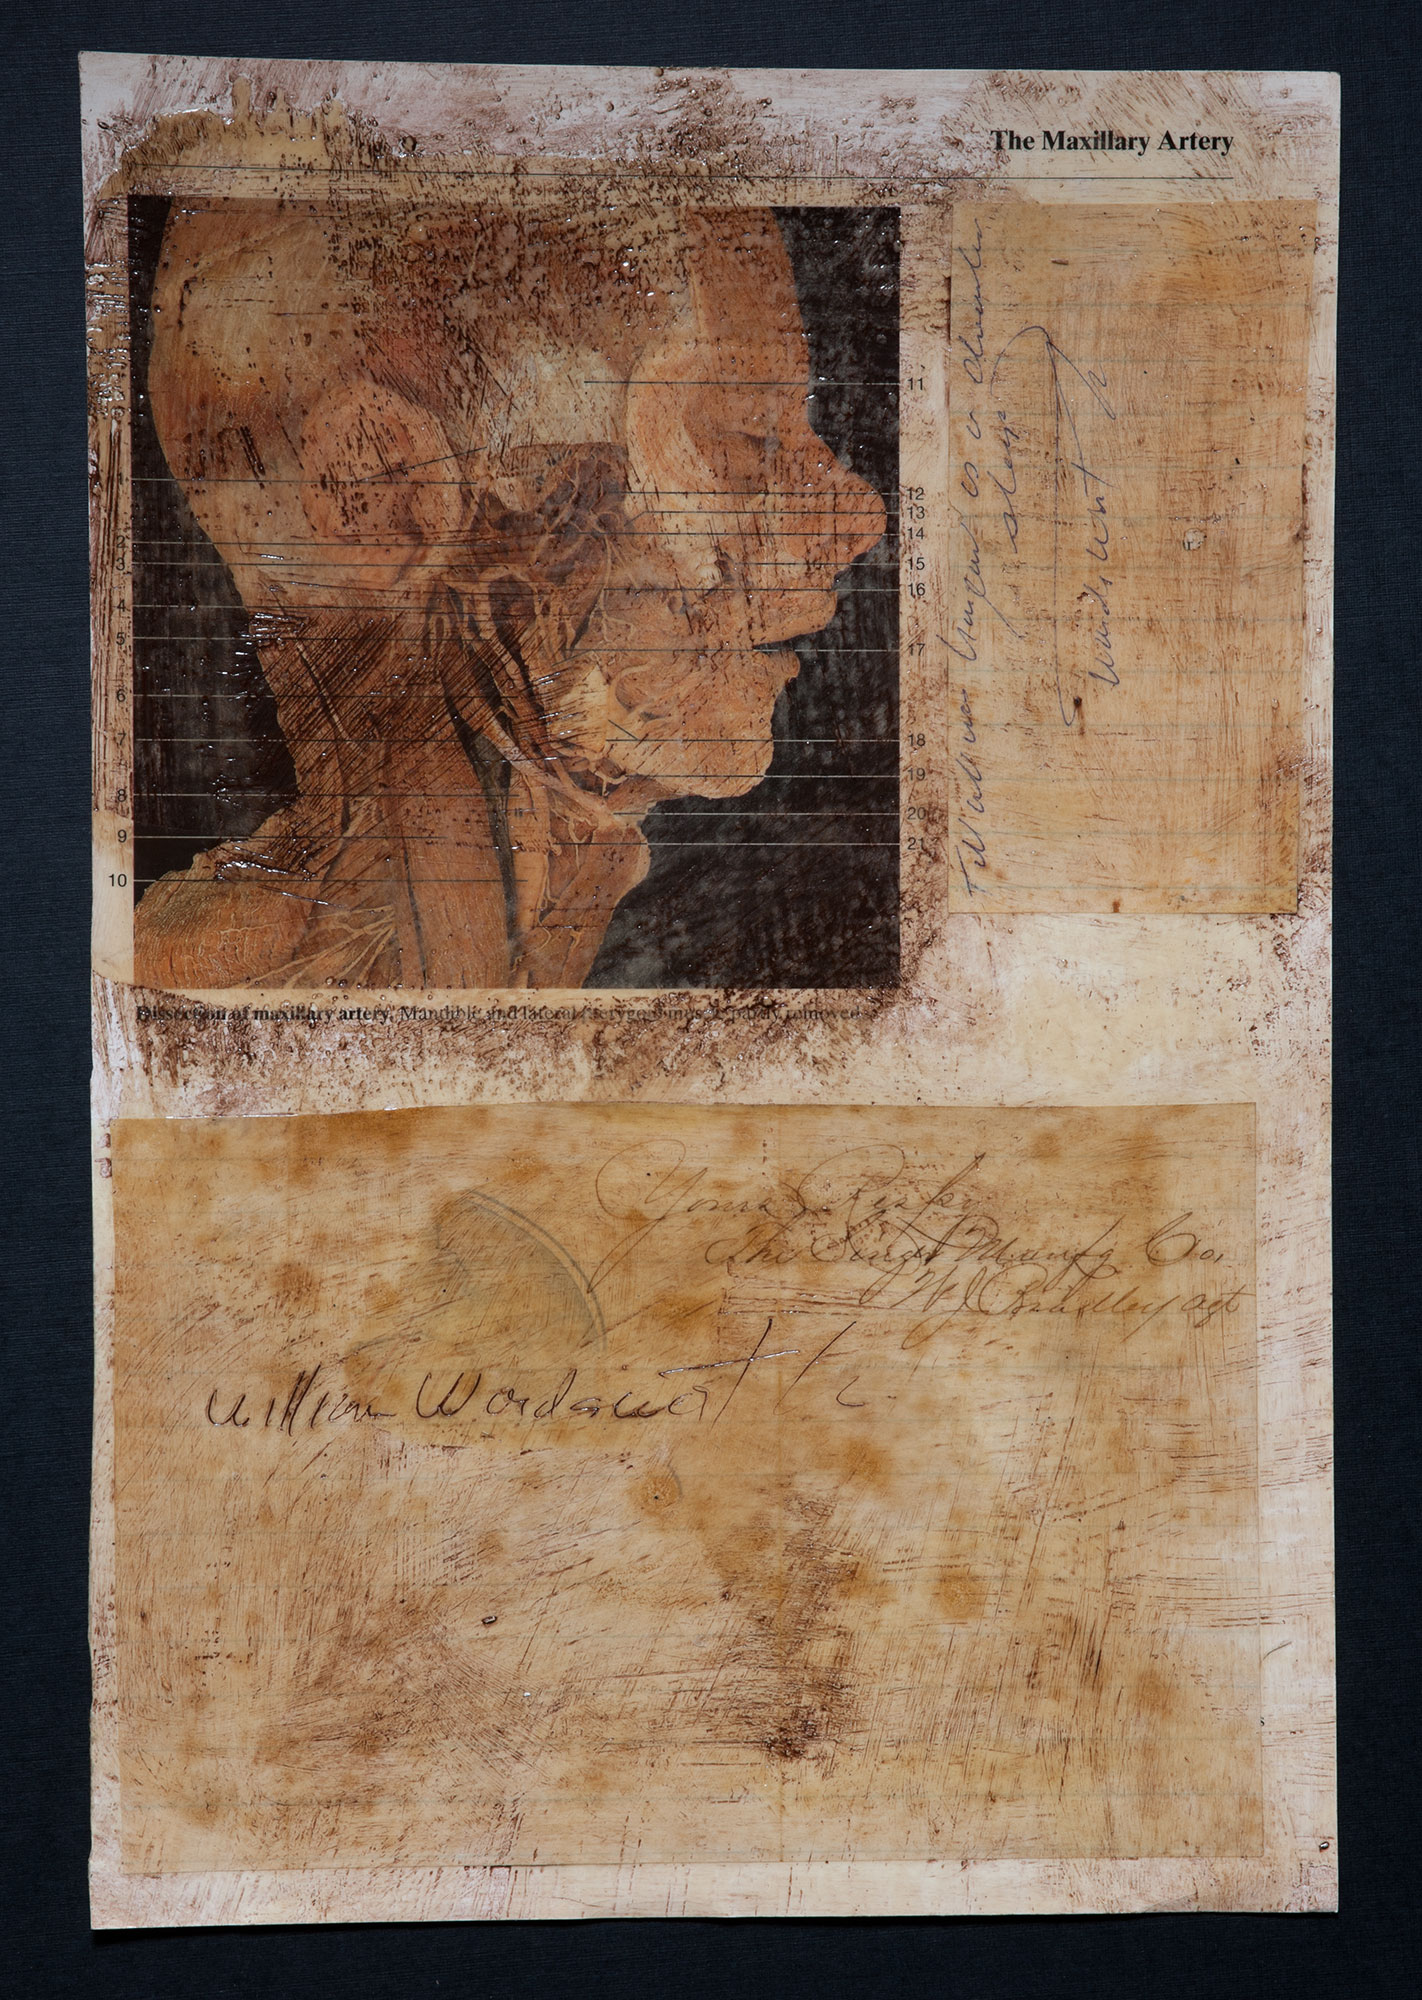 The Maxillary Artery
11
12
13
14
15
16
17
18
19
20
21
1
2
3
4
5
6
7
8
9
10
Dissection of maxillary artery. Mandible and lateral pterygoid muscle partly removed
as a
sleep
Yours Resp
The Singer Manufg Co.
W J Bradley agt
William Wordsworth